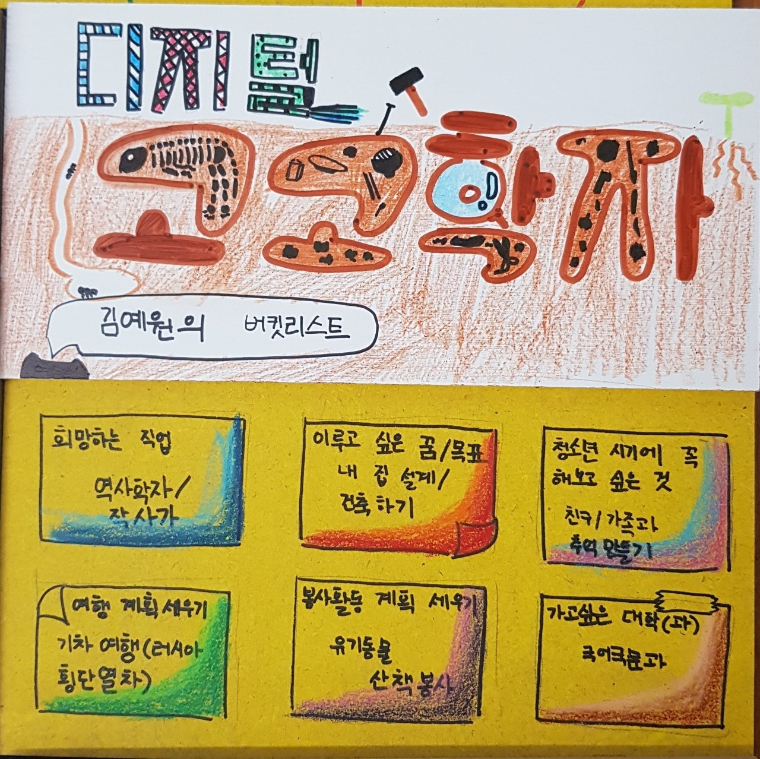 디지털
고고학자
김예원의 버킷리스트
희망하는 직업
역사학자/
작사가
이루고 싶은 꿈/목표
내 집 설계/
건축하기
청소년 시기에 꼭
해보고 싶은 것
친구/가족과
추억 만들기
여행 계획 세우기
기차 여행(러시아
횡단열차)
봉사활동 계획 세우기
유기동물
산책봉사
가고싶은 대학(과)
국어국문과